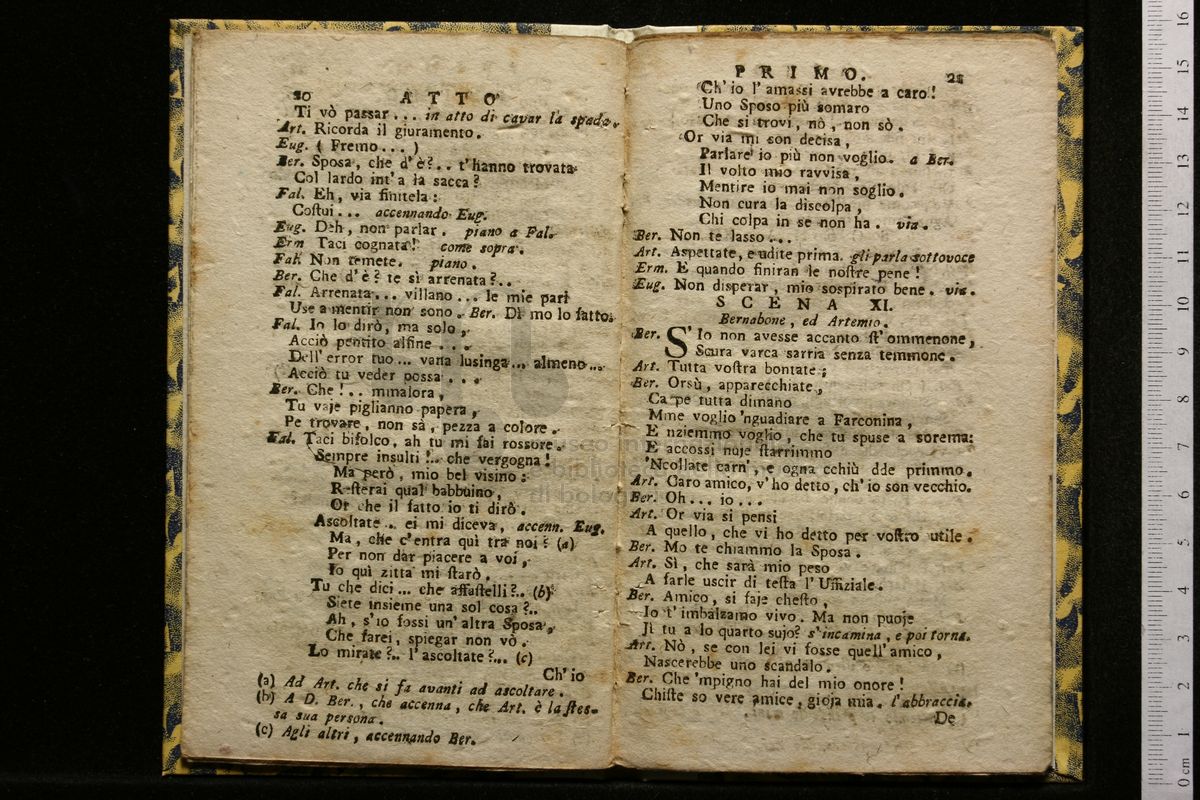 20 ATTO
Ti vò passar... in atto di cavar la spada.
Art. Ricorda il giuramento.
Eug. ( Fremo... )
Ber. Sposa, che d'è?.. t'hanno trovata
Col lardo int'a la sacca?
Fal. Eh, via finitela:
Costui... accennando Eug.
Eug. Deh, non parlar. piano a Fal.
Erm Taci cognata! come sopra.
Fal. Non temete. piano.
Ber. Che d'è? te sì arrenata?..
Fal. Arrenata... villano... le mie pari
Use a mentir non sono. Ber. Dì mo lo fatto.
Fal. Io lo dirò, ma solo,
Acciò pentito alfine...
Dell'error tuo... vana lusinga... almeno...
Acciò tu veder possa...
Ber. Che!.. mmalora,
Tu vaje piglianno papera,
Pe trovare, non sà, pezza a colore.
Fal. Taci bifolco, ah tu mi fai rossore.
Sempre insulti!.. che vergogna!
Ma però, mio bel visino:
Resterai qual babbuino,
Or che il fatto io ti dirò.
Ascoltate.. ei mi diceva, accenn. Eug.
Ma, che c'entra quì tra noi? (a)
Per non dar piacere a voi,
Io quì zitta mi starò.
Tu che dici... che affastelli?.. (b)
Siete insieme una sol cosa?..
Ah, s'io fossi un'altra Sposa,
Che farei, spiegar non vò.
Lo mirate?.. l'ascoltate?... (c)
Ch'io
(a) Ad Art. che si fa avanti ad ascoltare.
(b) A D. Ber., che accenna, che Art. è la stes-
sa sua persona.
(c) Agli altri, accennando Ber.
PRIMO. 21
Ch'io l'amassi avrebbe a caro!
Uno Sposo più somaro
Che si trovi, nò, non sò.
Or via mi son decisa,
Parlare io più non voglio. a Ber.
Il volto mio ravvisa,
Mentire io mai non soglio.
Non cura la discolpa,
Chi colpa in se non ha. via.
Ber. Non te lasso...
Art. Aspettate, e udite prima. gli parla sottovoce
Erm. E quando finiran le nostre pene!
Eug. Non disperar, mio sospirato bene. via.
SCENA XI.
Bernabone, ed Artemio.
Ber. S'Io non avesse accanto st'ommenone,
Scura varca sarria senza temmone.
Art. Tutta vostra bontate;
Ber. Orsù, apparecchiate,
Ca pe tutta dimano
Mme voglio 'nguadiare a Farconina,
E nziemmo voglio, che tu spuse a sorema:
E accossì nuje starrimmo
'Ncollate carn', e ogna cchiù dde primmo.
Art. Caro amico, v'ho detto, ch'io son vecchio.
Ber. Oh... io...
Art. Or via si pensi
A quello, che vi ho detto per vostro utile.
Ber. Mo te chiammo la Sposa.
Art. Sì, che sarà mio peso
A farle uscir di testa l'Uffiziale.
Ber. Amico, si faje chesto,
Io t'imbalzamo vivo. Ma non puoje
Jì tu a lo quarto sujo? s'incamina, e poi torna.
Art. Nò, se con lei vi fosse quell'amico,
Nascerebbe uno scandalo.
Ber. Che 'mpigno hai del mio onore!
Chiste so vere amice, gioja mia. l'abbraccia.
De